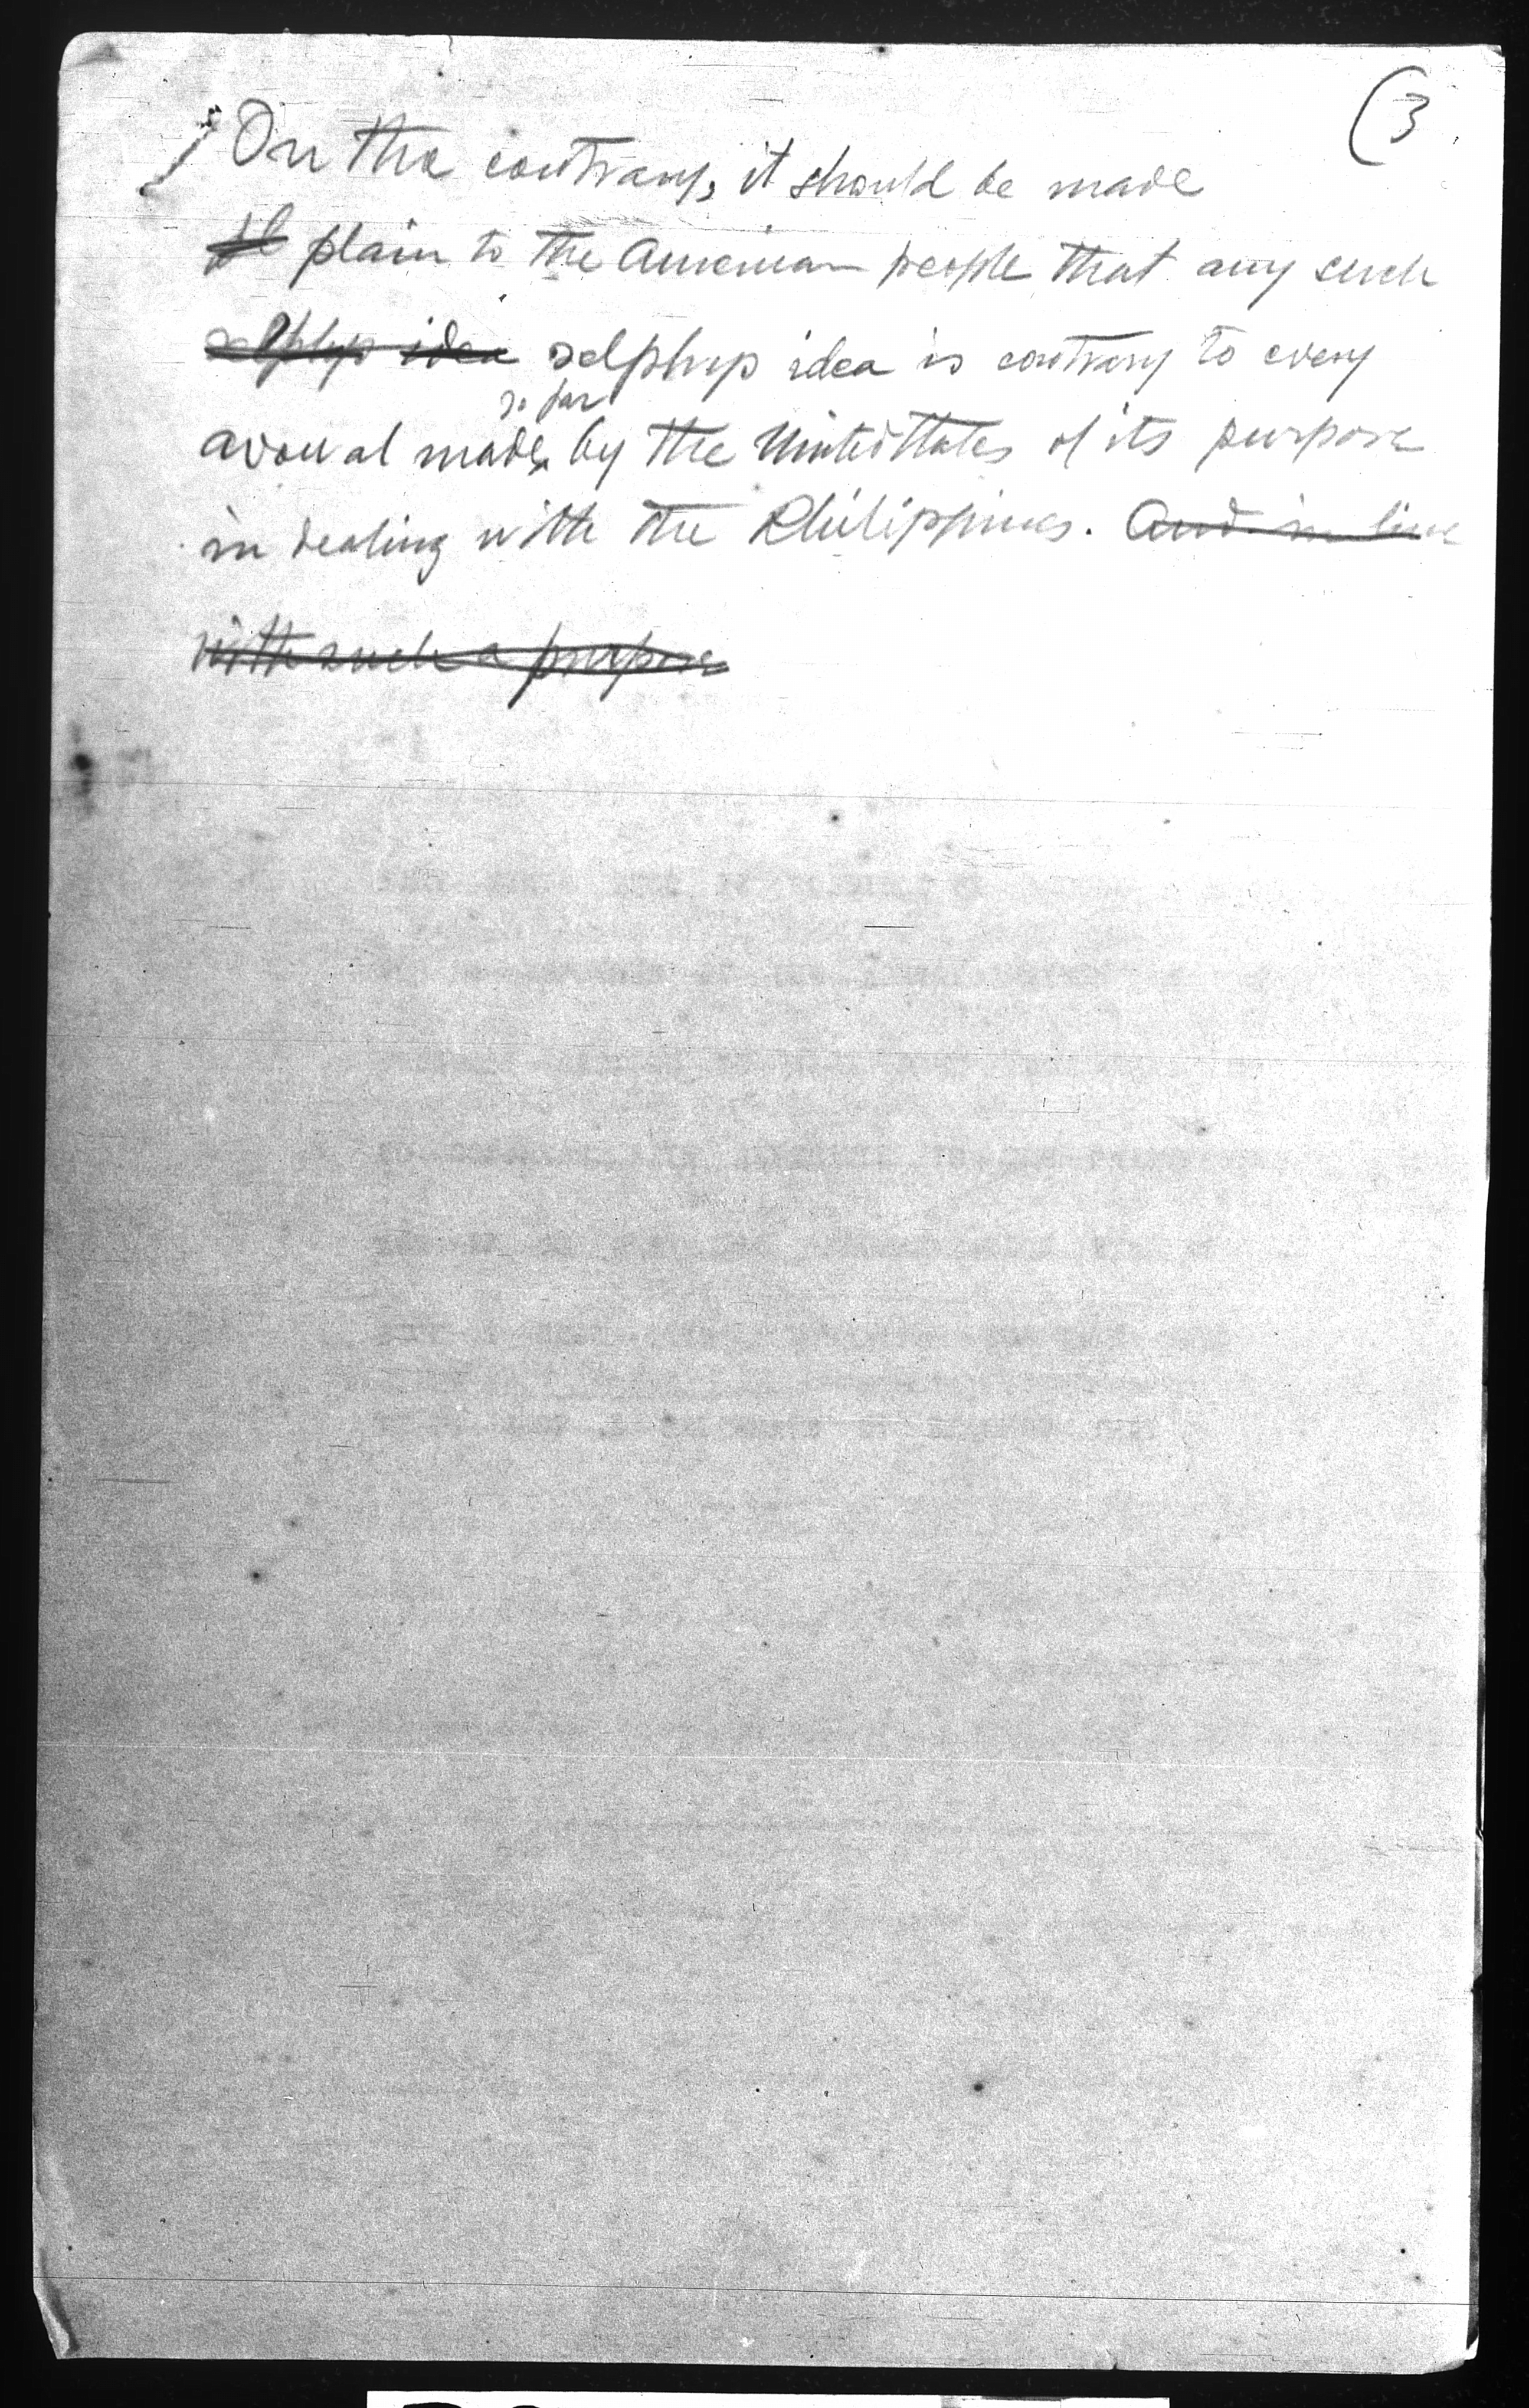 (3
On the contrary, it should be made
pl plain to the American people that any such
selfhsp idea selphsp idea is contrary to every
so far
avowal made by the United States of its purpose
in dealing with the Philippines. And in line
with such a purpose